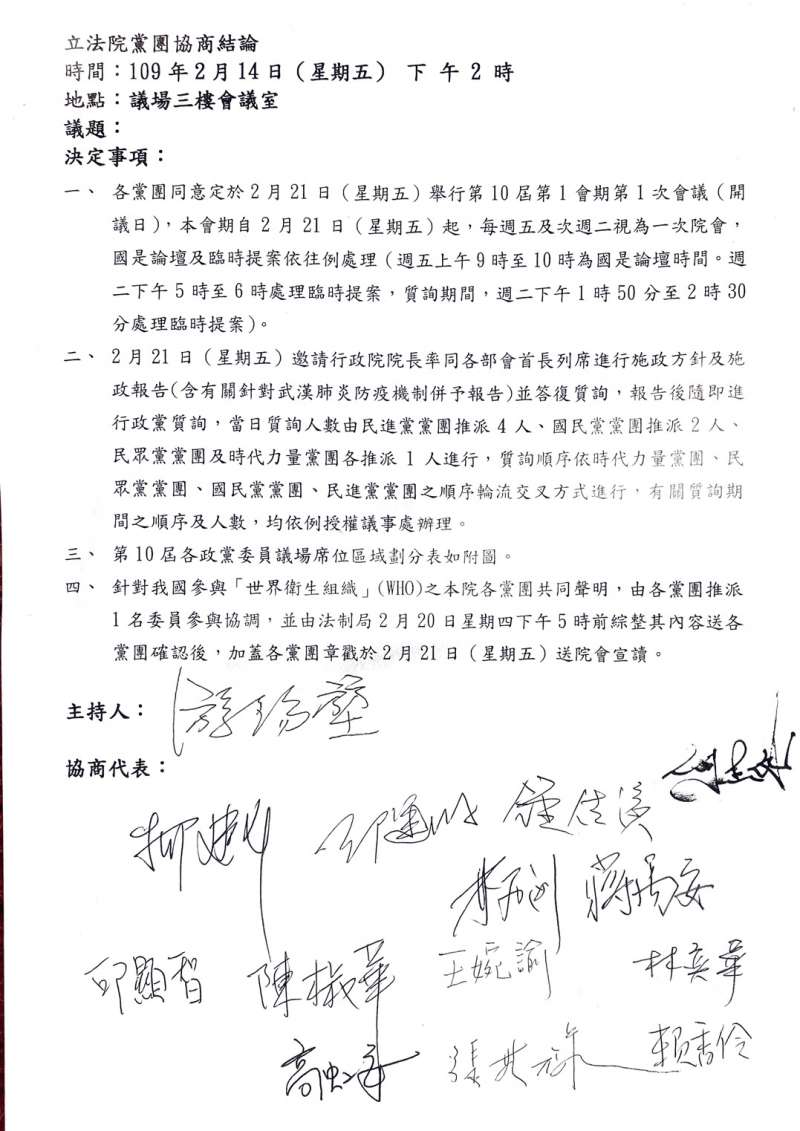 立法院黨團協商結論
時間：109年2月14日（星期五） 下 午 2 時
地點：議場三樓會議室
議題：
決定事項：
一、 各黨團同意定於2月21日（星期五）舉行第10屆第1會期第1次會議（開
議日），本會期自2月21日（星期五）起，每週五及次週二視為一次院會，
國是論壇及臨時提案依往例處理（週五上午9時至10時為國是論壇時間。週
二下午5時至6時處理臨時提案，質詢期間，週二下午1時50分至2時30
分處理臨時提案）。
二、 2月21日（星期五）邀請行政院院長率同各部會首長列席進行施政方針及施
政報告(含有關針對武漢肺炎防疫機制併予報告)並答復質詢，報告後隨即進
行政黨質詢，當日質詢人數由民進黨黨團推派4人、國民黨黨團推派2人、
民眾黨黨團及時代力量黨團各推派1人進行，質詢順序依時代力量黨團、民
眾黨黨團、國民黨黨團、民進黨黨團之順序輪流交叉方式進行，有關質詢期
間之順序及人數，均依例授權議事處辦理。
三、 第10屆各政黨委員議場席位區域劃分表如附圖。
四、 針對我國參與「世界衛生組織」(WHO)之本院各黨團共同聲明，由各黨團推派
1名委員參與協調，並由法制局2月20日星期四下午5時前綜整其內容送各
黨團確認後，加蓋各黨團章戳於2月21日（星期五）送院會宣讀。
主持人： 游錫堃
協商代表：
鍾佳濱
蔣萬安
邱顯智 陳椒華 王婉諭 林奕華
高虹安 張其祿 賴香伶